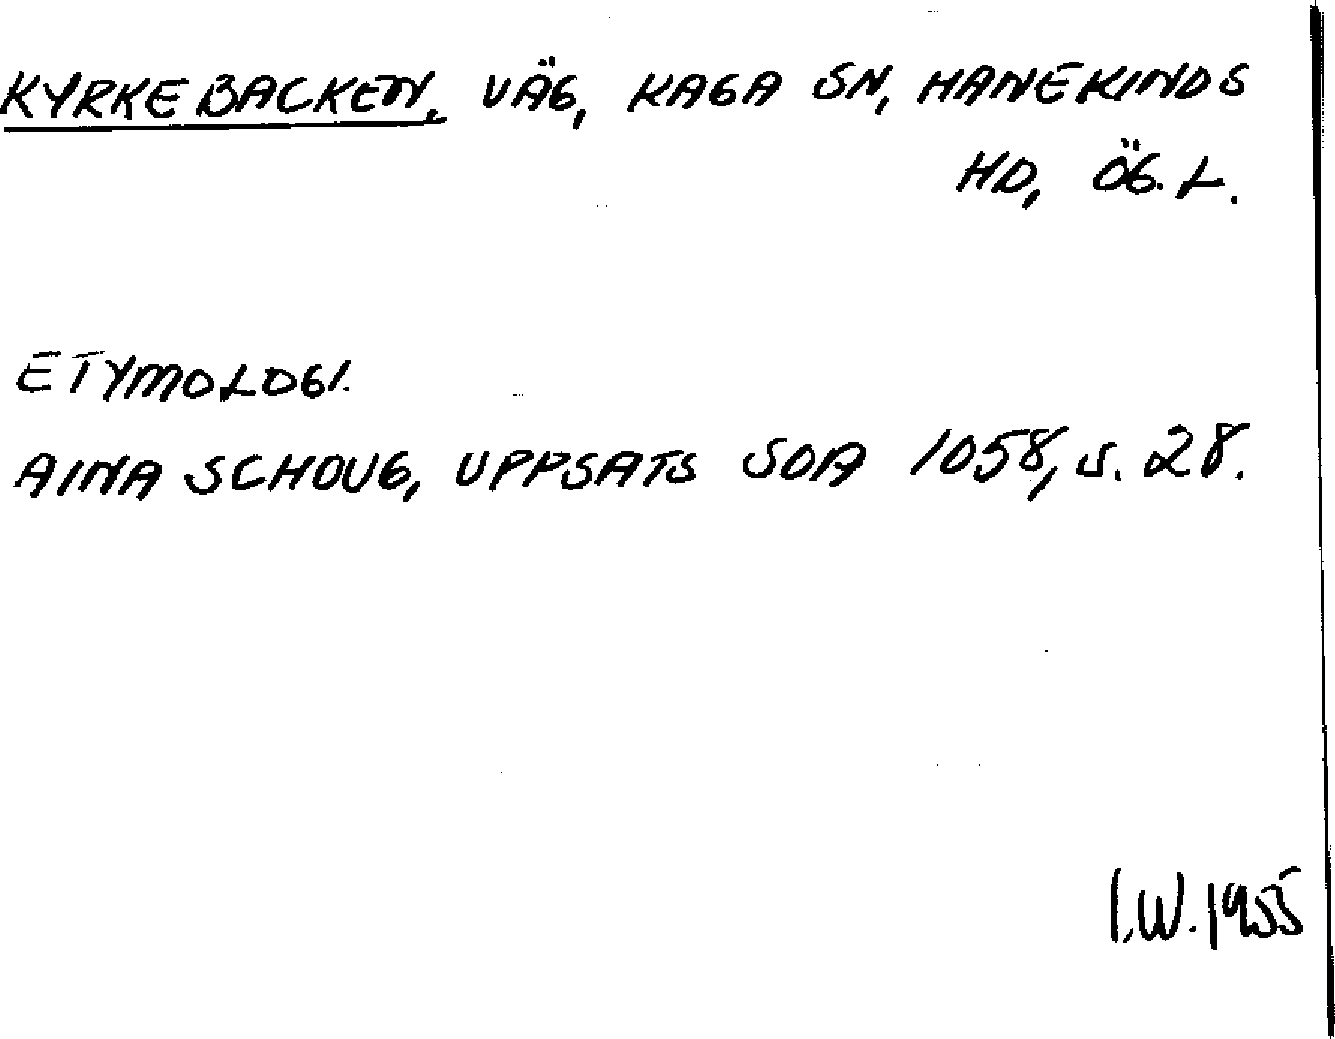 KYRKEBACKEN, VÄG, KAGA SN, HANEKINDS
HD, ÖG. L.
ETYMOLOGI.
AINA SCHOUG, UPPSATS SOA 1058, s. 28.
I.W. 1955